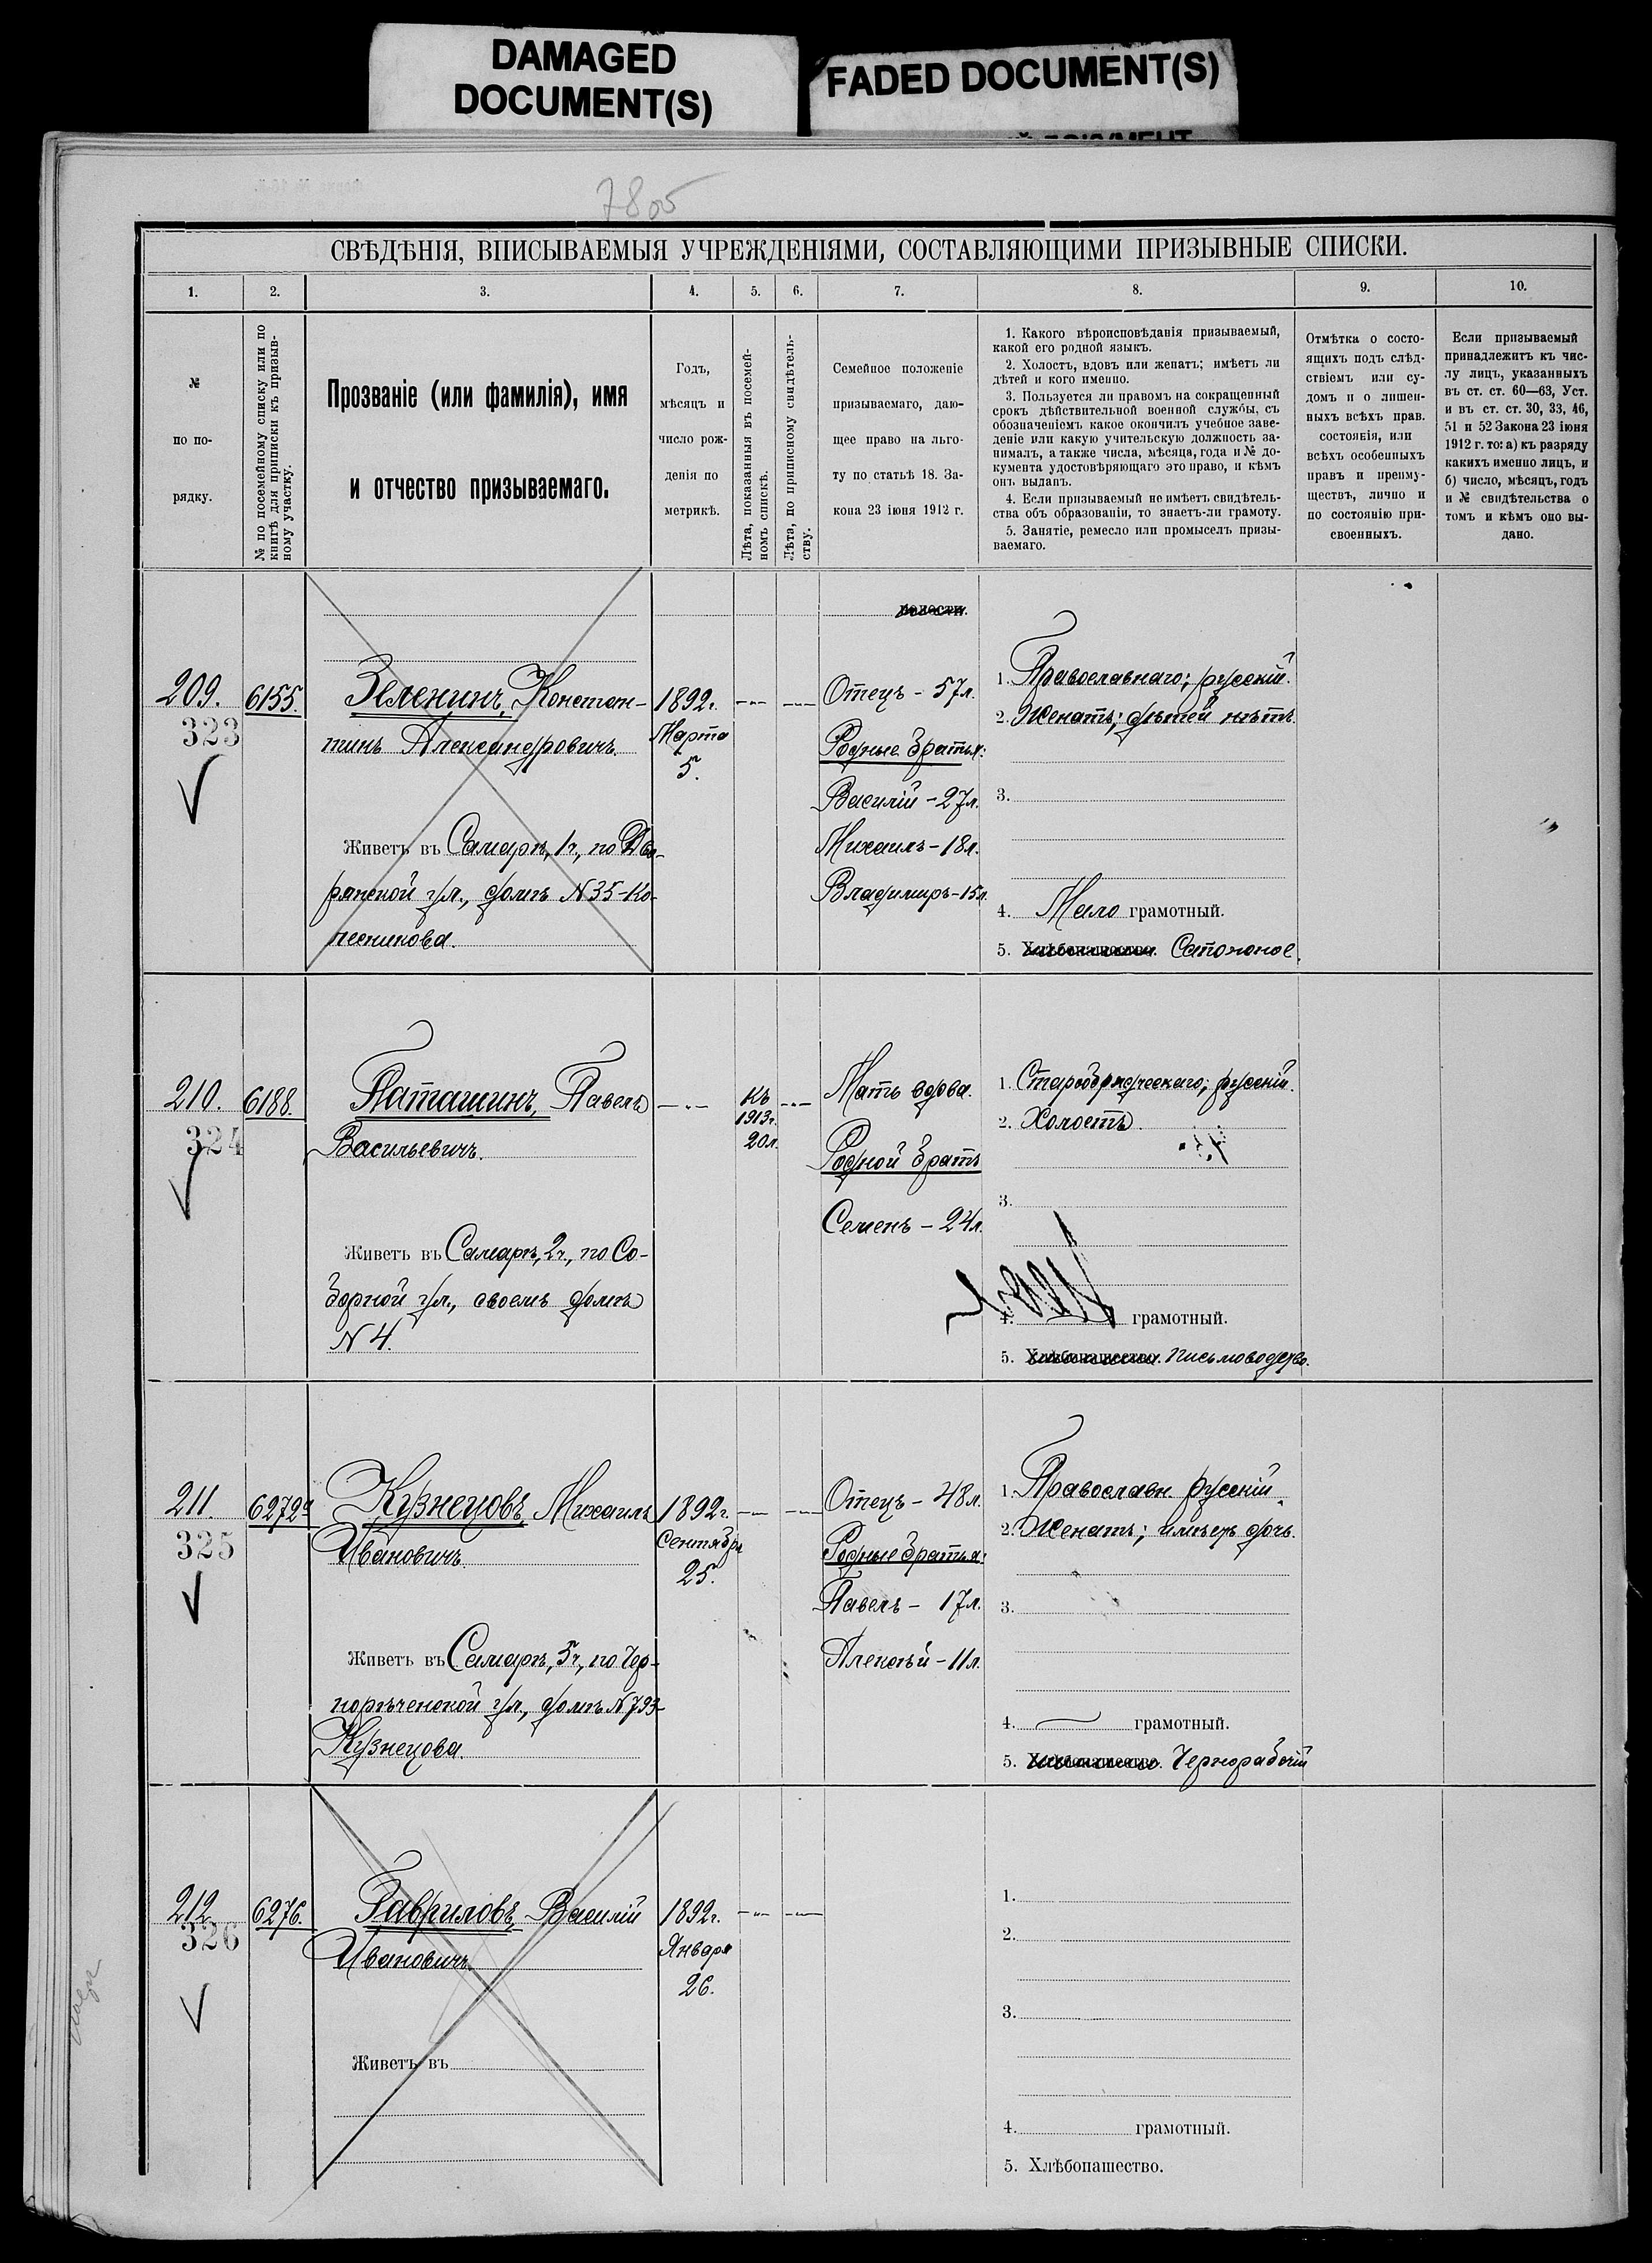 DAMAGED
DOCUMENT(S)
FADED DOCUMENT(S)
7805
СВѢДѢНІЯ, ВПИСЫВАЕМЫЯ УЧРЕЖДЕНІЯМИ, СОСТАВЛЯЮЩИМИ ПРИЗЫВНЫЕ СПИСКИ.
1.
2.
3.
4.
5.
6.
7.
8.
9.
10.
№
по по-
рядку.
№ по посемейному списку или по
книгѣ для приписки къ призыв-
ному участку.
Прозваніе (или фамилія), имя
и отчество призываемаго.
Годъ,
мѣсяцъ и
число рож-
денія по
метрикѣ.
Лѣта, показанныя въ посемей-
номъ спискѣ.
Лѣта, по приписному свидѣтель-
ству.
Семейное положеніе
призываемаго, даю-
щее право на льго-
ту по статьѣ 18. За-
кона 23 іюня 1912 г.
1. Какого вѣроисповѣданія призываемый,
какой его родной языкъ.
2. Холостъ, вдовъ или женатъ; имѣетъ ли
дѣтей и кого именно.
3. Пользуется ли правомъ на сокращенный
срокъ дѣйствительной военной службы, съ
обозначеніемъ какое окончилъ учебное заве-
деніе или какую учительскую должность за-
нималъ, а также числа, мѣсяца, года и № до-
кумента удостовѣряющаго это право, и кѣмъ
онъ выданъ.
4. Если призываемый не имѣетъ свидѣтель-
ства объ образованіи, то знаетъ-ли грамоту.
5. Занятіе, ремесло или промыселъ призы-
ваемаго.
Отмѣтка о состо-
ящихъ подъ слѣд-
ствіемъ или су-
домъ и о лишен-
ныхъ всѣхъ прав.
состоянія, или
всѣхъ особенныхъ
правъ и преиму-
ществъ, лично и
по состоянію при-
своенныхъ.
Если призываемый
принадлежитъ къ чис-
лу лицъ, указанныхъ
въ ст. ст. 60—63, Уст.
и въ ст. ст. 30, 33, 46,
51 и 52 Закона 23 іюня
1912 г. то: а) къ разряду
какихъ именно лицъ, и
б) число, мѣсяцъ, годъ
и № свидѣтельства о
томъ и кѣмъ оно вы-
дано.
волости.
209.
323
6155.
Зеленинъ, Констан-
тинъ Александровичъ.
Живетъ въ Самарѣ, 1ч., по Дво-
рянской ул., домъ N 35-Ко-
лесникова.
1892г.
Марта
5.
Отецъ - 57л.
Родные братья:
Василій - 27л.
Михаилъ - 18л.
Владимиръ - 15л.
1. Православнаго; русскій.
2. Женатъ; дѣтей нѣтъ.
3.
4. Мало грамотный.
5. Хлѣбопашество. Сапожное.
210.
324
6188.
Паташинъ, Павелъ
Васильевичъ.
Живетъ въ Самарѣ, 2ч., по Со-
борной ул., своемъ домѣ
N 4.
Къ
1913г.
20л.
Мать вдова.
Родной братъ
Семенъ - 24л.
1. Старообрядческаго; русскій.
2. Холостъ.
3.
4. грамотный.
5. Хлѣбопашество. Письмоводство.
211.
325
6272а
Кузнецовъ, Михаилъ
Ивановичъ.
Живетъ въ Самарѣ, 5ч., по Чер-
норѣченской ул., домъ N 793-
Кузнецова.
1892г.
Сентября
25.
Отецъ - 48л.
Родные братья:
Павелъ - 17л.
Алексѣй - 11л.
1. Православн. русскій.
2. Женатъ; имѣетъ дочь.
3.
4. грамотный.
5. Хлѣбопашество. Чернорабочій
212
326
6276.
Гавриловъ, Василій
Ивановичъ.
Живетъ въ
1892г.
Января
26.
1.
2.
3.
4. грамотный.
5. Хлѣбопашество.